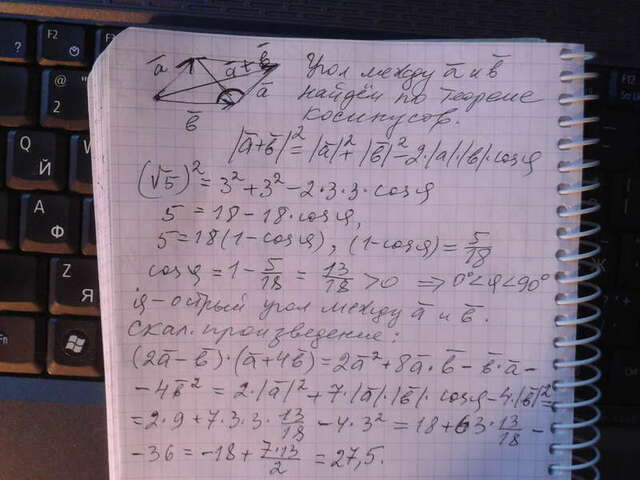 ā ā+b̄ b̄ ā
b̄
Угол между ā и b̄
найдём по теореме
косинусов.
|ā+b̄|² = |ā|² + |b̄|² - 2·|a|·|b|·cosφ
(√5)² = 3² + 3² - 2·3·3·cosφ
5 = 18 - 18·cosφ,
5 = 18(1-cosφ), (1-cosφ) = 5/18
cosφ = 1 - 5/18 = 13/18 > 0 ⇒ 0°<φ<90°
φ - острый угол между ā и b̄.
скал. произведение:
(2ā - b̄)·(ā+4b̄) = 2ā² + 8ā·b̄ - b̄·ā -
- 4b̄² = 2·|ā|² + 7·|ā|·|b̄|·cosφ - 4·|b̄|² =
= 2·9 + 7·3·3·13/18 - 4·3² = 18 + 63·13/18 -
- 36 = -18 + 7·13/2 = 27,5.
?
F1
F2
@
2
Q
Й
A
Ф
Z
Я
F12